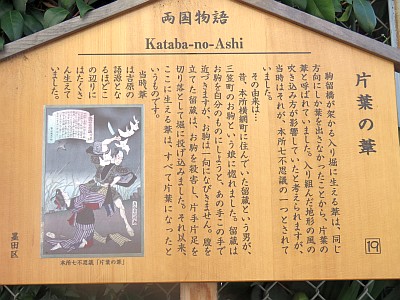 両国物語
Kataba-no-Ashi
片葉の葦
駒留橋が架かる入り堀に生える葦は、同じ
方向にしか葉を出さなかったことから、片葉の
葦と呼ばれていました。入り組んだ地形の風の
吹き込み方が影響していたと考えられますが、
当時はそれが、本所七不思議の一つとされて
いました。
その由来は…
昔、本所横網町に住んでいた留蔵という男が、
三笠町のお駒という娘に惚れました。留蔵は
お駒を自分のものにしようと、あの手この手で
近づきますが、お駒は一向になびきません。腹を
立てた留蔵は、お駒を殺害し、片手片足を
切り落として堀に投げ込みました。それ以来、
ここに生える葦は、すべて片葉になったと
いうものです。
当時、葦
は吉原の
語源とな
るほどこ
の辺りに
たくさ
ん生えて
いました。
本所七不思議「片葉の葦」
墨田区
19